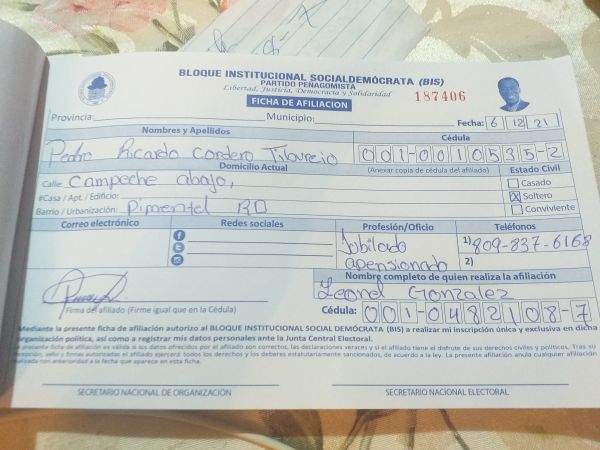 BLOQUE INSTITUCIONAL SOCIALDEMÓCRATA (BIS)
PARTIDO PEÑAGOMISTA
Libertad, Justicia, Democracia y Solidaridad
187406
FICHA DE AFILIACION
Provincia: Municipio: Fecha: 6 12 21
Nombres y Apellidos Cédula
Pedro Ricardo Cordero Tiburcio 001-0010535-2
Domicilio Actual (Anexar copia de cédula del afiliado) Estado Civil
Calle: Campeche abajo, Casado
#Casa / Apt. / Edificio: X Soltero
Barrio / Urbanización: Pimentel RD Conviviente
Correo electrónico Redes sociales Profesión/Oficio Teléfonos
Jubilado 1) 809-837-6168
apensionado 2)
Nombre completo de quien realiza la afiliación
Leonel Gonzalez
Firma del afiliado (Firme igual que en la Cédula) Cédula: 001-0482108-7
Mediante la presente ficha de afiliación autorizo al BLOQUE INSTITUCIONAL SOCIAL DEMÓCRATA (BIS) a realizar mi inscripción única y exclusiva en dicha
organización política, así como a registrar mis datos personales ante la Junta Central Electoral.
La presente ficha de afiliación es válida si los datos ofrecidos por el afiliado son correctos, las declaraciones veraces y si el afiliado tiene el disfrute de sus derechos civiles y políticos. Tras su
recepción, sello y firmas autorizadas el afiliado ejercerá todos los derechos y los deberes estatutariamente sancionados, de acuerdo a la ley. La presente afiliación anula cualquier afiliación
realizada con anterioridad a la fecha que aparece en esta ficha.
SECRETARIO NACIONAL DE ORGANIZACIÓN SECRETARIO NACIONAL ELECTORAL